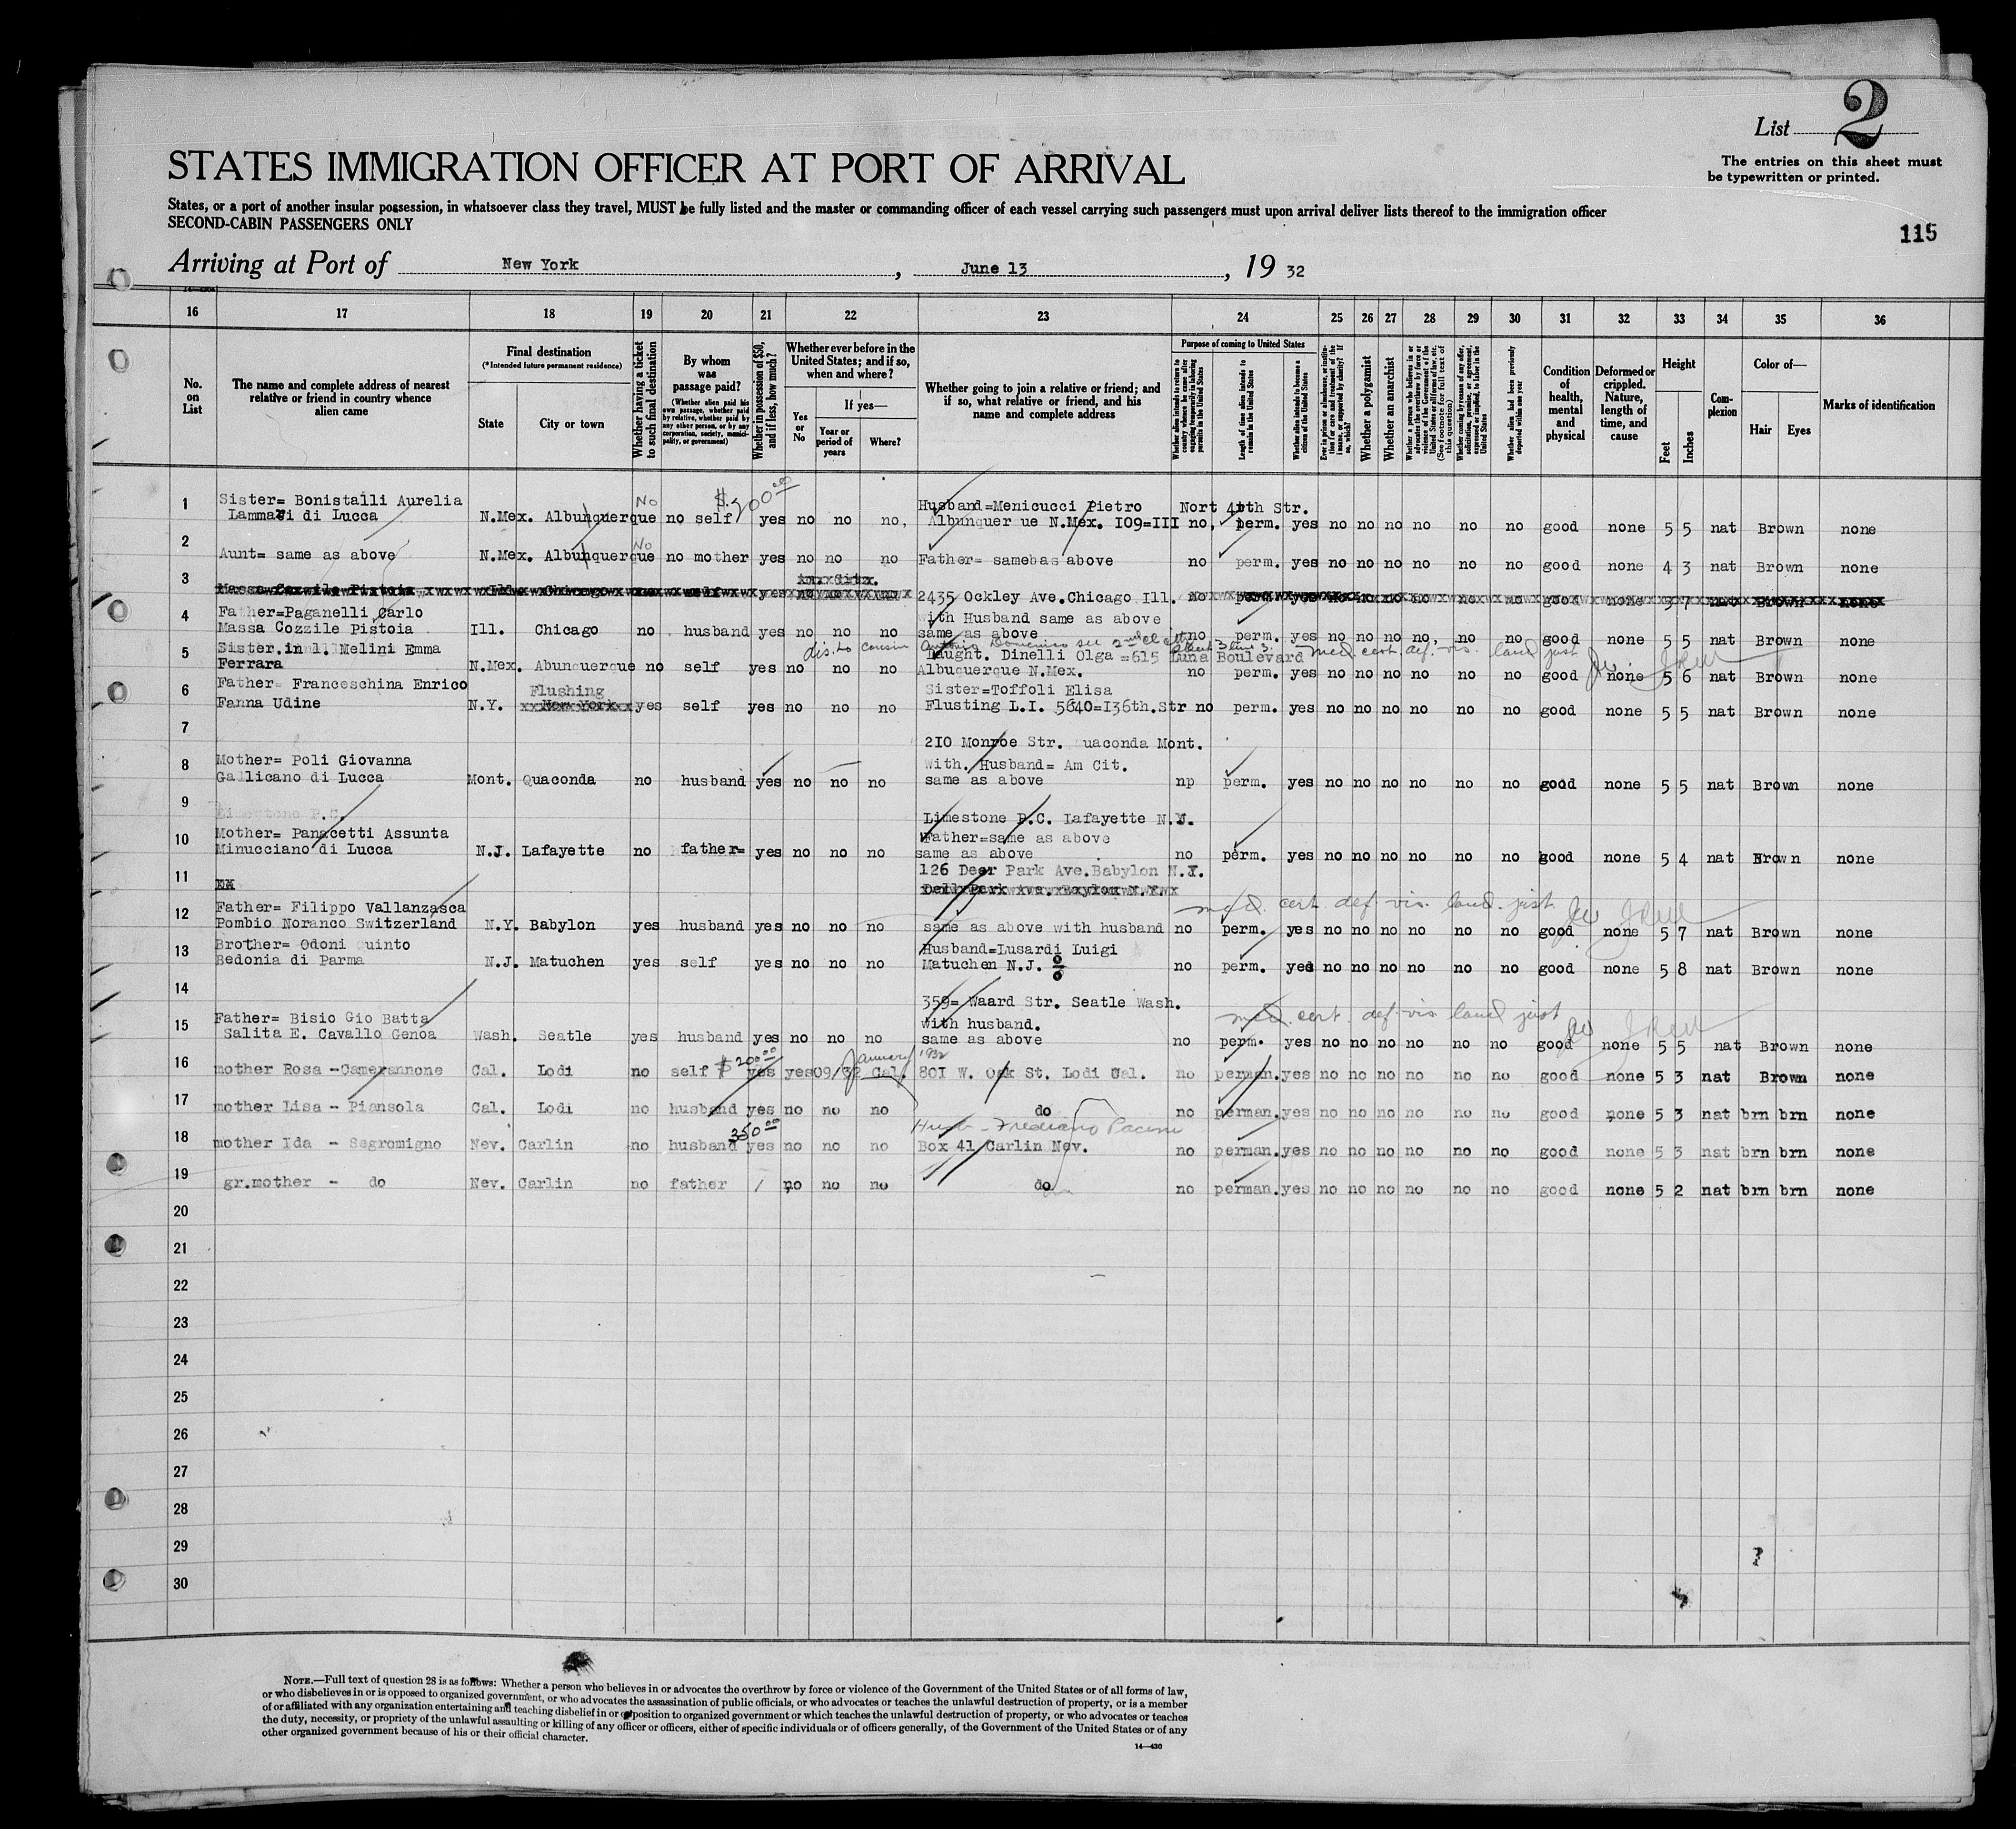 List 2
The entries on this sheet must
be typewritten or printed.
STATES IMMIGRATION OFFICER AT PORT OF ARRIVAL
States, or a port of another insular possession, in whatsoever class they travel, MUST be fully listed and the master or commanding officer of each vessel carrying such passengers must upon arrival deliver lists thereof to the immigration officer
SECOND-CABIN PASSENGERS ONLY
115
Arriving at Port of New York, June 13, 19 32
16 17 18 19 20 21 22 23 24 25 26 27 28 29 30 31 32 33 34 35 36
No. on List
The name and complete address of nearest relative or friend in country whence alien came
Final destination
(*Intended future permanent residence)
State
City or town
Whether having a ticket to such final destination
By whom was passage paid?
(Whether alien paid his own passage, whether paid by relative, whether paid by any other person, or by any corporation, society, municipality, or government)
Whether in possession of $50, and if less, how much?
Whether ever before in the United States; and if so, when and where?
Yes or No
If yes—
Year or period of years
Where?
Whether going to join a relative or friend; and if so, what relative or friend, and his name and complete address
Purpose of coming to United States
Length of time alien intends to remain in the United States
Whether alien intends to become a citizen of the United States
Whether a polygamist
Whether an anarchist
Whether alien had been previously deported within one year
Condition of health, mental and physical
Deformed or crippled. Nature, length of time, and cause
Height
Feet
Inches
Complexion
Color of—
Hair
Eyes
Marks of identification
1 Sister= Bonistalli Aurelia No $200.00 Husband=Menicucci Pietro Nort 4th Str.
Lammari di Lucca N.Mex. Albunquerque no self yes no no no, Albunquer ue N.Mex. I09=III no, perm. yes no no no no no no good none 5 5 nat Brown none
2 Aunt= same as above N.Mex. Albunquerque No no mother yes no no no Father= samebas above no perm. yes no no no no no no good none 4 3 nat Brown none
3 Massa Cozzile Pistoia Ill. Chicago no self yes 2435 Ockley Ave.Chicago Ill. no perm. yes no no no no no no good none 5 7 nat Brown none
4 Father=Paganelli Carlo with Husband same as above
Massa Cozzile Pistoia Ill. Chicago no husband yes no no no same as above no perm. yes no no no no, no no good none 5 5 nat Brown none
dis. to cousin Antonio Domenico see 2nd cl sheet 3 line 3. med cert. def. vis. land just
5 Sister.in l. Melini Emma Daught. Dinelli Olga =615 Luna Boulevard
Ferrara N.Mex. Abunquerque no self yes no no no Albuquerque N.Mex. no perm. yes no no no no no no good none 5 6 nat Brown none
6 Father= Franceschina Enrico Flushing Sister=Toffoli Elisa
Fanna Udine N.Y. New York yes self yes no no no Flusting L.I. 5640=I36th.Str no perm. yes no no no no no no good none 5 5 nat Brown none
7 2I0 Monroe Str. uaconda Mont.
8 Mother= Poli Giovanna with. Husband= Am Cit.
Gallicano di Lucca Mont. Quaconda no husband yes no no no same as above np perm. yes no no no no no no good none 5 5 nat Brown none
9 Limestone P.C. Limestone P.C. Lafayette N.J.
10 Mother= Panacetti Assunta Father=same as above
Minucciano di Lucca N.J. Lafayette no father= yes no no no same as above no perm. yes no no no no no no good none 5 4 nat Brown none
11 I26 Deer Park Ave.Babylon N.Y.
med. cert. def. vis. land. just
12 Father= Filippo Vallanzasca
Pombio Noranco Switzerland N.Y. Babylon yes husband yes no no no same as above with husband no perm. yes no no no no no no good none 5 7 nat Brown none
13 Brother= Odoni uinto Husband=Lusardi Luigi
Bedonia di Parma N.J. Matuchen yes self yes no no no Matuchen N.J. no perm. yes no no no no no no good none 5 8 nat Brown none
14 359= Waard Str. Seatle Wash.
med. cert. def. vis. land just
15 Father= Bisio Gio Batta with husband.
Salita E. Cavallo Genoa Wash. Seatle yes husband yes no no no same as above no perm. yes no no no no no no good none 5 5 nat Brown none
16 mother Rosa -Camerannone Cal. Lodi no self $200.00 yes yes 09/32 January 1932 Cal. 80I W. Oak St. Lodi Cal. no perman. yes no no no no no no good none 5 3 nat Brown none
17 mother Lisa - Piansola Cal. Lodi no husband yes no no no do no perman. yes no no no no no no good none 5 3 nat brn brn none
350.00 Husb - Frediano Pacini
18 mother Ida - Segromigno Nev. Carlin no husband yes no no no Box 41 Carlin Nev. no perman. yes no no no no no no good none 5 3 nat brn brn none
19 gr.mother - do Nev. Carlin no father / no no no do no perman. yes no no no no no no good none 5 2 nat brn brn none
20
21
22
23
24
25
26
27
28
29
30
NOTE.—Full text of question 28 is as follows: Whether a person who believes in or advocates the overthrow by force or violence of the Government of the United States or of all forms of law,
or who disbelieves in or is opposed to organized government, or who advocates the assassination of public officials, or who advocates or teaches the unlawful destruction of property, or is a member
of or affiliated with any organization entertaining and teaching disbelief in or opposition to organized government or which teaches the unlawful destruction of property, or who advocates or teaches
the duty, necessity, or propriety of the unlawful assaulting or killing of any officer or officers, either of specific individuals or of officers generally, of the Government of the United States or of any
other organized government because of his or their official character.
14—430